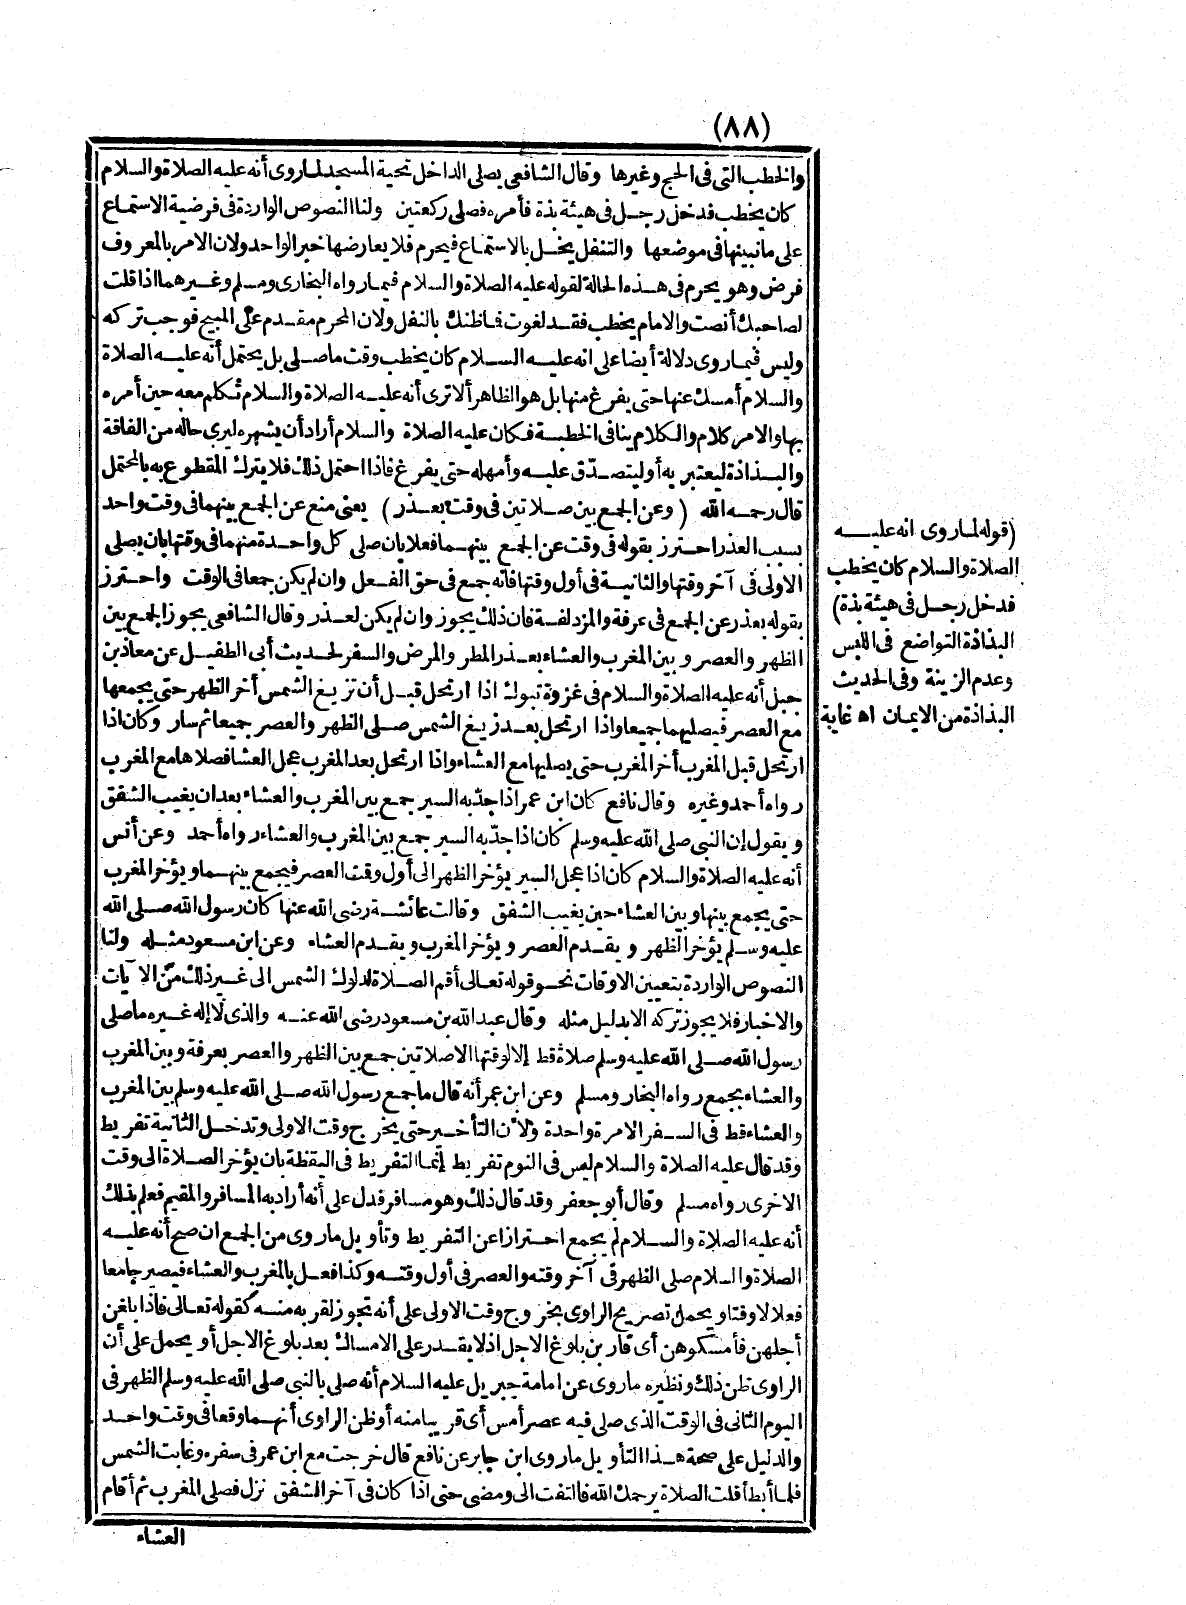 (٨٨)
والخطب التى فى الحج وغيرها وقال الشافعى يصلى الداخل تحية المسجد لما روى أنه عليه الصلاة والسلام
كان يخطب فدخل رجل فى هيئة بذة فأمره فصلى ركعتين ولنا النصوص الواردة فى فرضية الاستماع
على ما نبينها فى موضعها والتنفل يخل بالاستماع فيحرم فلا يعارضها خبر الواحد ولان الامر بالمعروف
فرض وهو يحرم فى هذه الحالة لقوله عليه الصلاة والسلام فيما رواه البخارى ومسلم وغيرهما اذا قلت
لصاحبك أنصت والامام يخطب فقد لغوت فما ظنك بالنفل ولان المحرم مقدم على المبيح فوجب تركه
وليس فيما روى دلالة أيضا على انه عليه السلام كان يخطب وقت ما صلى بل يحتمل أنه عليه الصلاة
والسلام أمسك عنها حتى يفرغ منها بل هو الظاهر ألا ترى أنه عليه الصلاة والسلام تكلم معه حين أمره
بها والامر كلام والكلام ينافى الخطبة فكان عليه الصلاة والسلام أراد أن يشهره ليرى حاله من الفاقة
والبذاذة ليعتبر به أو ليتصدق عليه وأمهله حتى يفرغ فاذا احتمل ذلك فلا يترك المقطوع به بالمحتمل
قال رحمه الله (وعن الجمع بين صلاتين فى وقت بعذر) يعنى منع عن الجمع بينهما فى وقت واحد
بسبب العذر احترز بقوله فى وقت عن الجمع بينهما فعلا بان صلى كل واحدة منهما فى وقتها بان يصلى
الاولى فى آخر وقتها والثانية فى أول وقتها فانه جمع فى حق الفعل وان لم يكن جمعا فى الوقت واحترز
بقوله بعذر عن الجمع فى عرفة والمزدلفة فان ذلك يجوز وان لم يكن لعذر وقال الشافعى يجوز الجمع بين
الظهر والعصر وبين المغرب والعشاء بعذر المطر والمرض والسفر لحديث أبى الطفيل عن معاذ بن
جبل أنه عليه الصلاة والسلام فى غزوة تبوك اذا ارتحل قبل أن تزيغ الشمس أخر الظهر حتى يجمعها
مع العصر فيصليهما جميعا واذا ارتحل بعد زيغ الشمس صلى الظهر والعصر جميعا ثم سار وكان اذا
ارتحل قبل المغرب أخر المغرب حتى يصليها مع العشاء واذا ارتحل بعد المغرب عجل العشا فصلاها مع المغرب
رواه أحمد وغيره وقال نافع كان ابن عمر اذا جدّ به السير جمع بين المغرب والعشاء بعد ان يغيب الشفق
ويقول إن النبى صلى الله عليه وسلم كان اذا جدّ به السير جمع بين المغرب والعشاء رواه أحمد وعن أنس
أنه عليه الصلاة والسلام كان اذا عجل السير يؤخر الظهر الى أول وقت العصر فيجمع بينهما ويؤخر المغرب
حتى يجمع بينها وبين العشاء حين يغيب الشفق وقالت عائشة رضى الله عنها كان رسول الله صلى الله
عليه وسلم يؤخر الظهر ويقدم العصر ويؤخر المغرب ويقدم العشاء وعن ابن مسعود مثله ولنا
النصوص الواردة بتعيين الاوقات نحو قوله تعالى أقم الصلاة لدلوك الشمس الى غير ذلك من الآيات
والاخبار فلا يجوز تركه الا بدليل مثله وقال عبد الله بن مسعود رضى الله عنه والذى لا إله غيره ما صلى
رسول الله صلى الله عليه وسلم صلاة قط إلا لوقتها الا صلاتين جمع بين الظهر والعصر بعرفة وبين المغرب
والعشاء بجمع رواه البخار ومسلم وعن ابن عمر أنه قال ما جمع رسول الله صلى الله عليه وسلم بين المغرب
والعشاء قط فى السفر الا مرة واحدة ولأن التأخير حتى يخرج وقت الاولى وتدخل الثانية تفريط
وقد قال عليه الصلاة والسلام ليس فى النوم تفريط إنما التفريط فى اليقظة بان يؤخر الصلاة الى وقت
الاخرى رواه مسلم وقال أبو جعفر وقد قال ذلك وهو مسافر فدل على أنه أراد به المسافر والمقيم فعلم بذلك
أنه عليه الصلاة والسلام لم يجمع احترازا عن التفريط وتأويل ما روى من الجمع ان صح أنه عليه
الصلاة والسلام صلى الظهر فى آخر وقته والعصر فى أول وقته وكذا فعل بالمغرب والعشاء فيصير جامعا
فعلا لا وقتا ويحمل تصريح الراوى بخروج وقت الاولى على أنه تجوز لقربه منه كقوله تعالى فاذا بلغن
أجلهن فأمسكوهن أى قاربن بلوغ الاجل اذ لا يقدر على الامساك بعد بلوغ الاجل أو يحمل على أن
الراوى ظن ذلك ونظيره ما روى عن امامة جبريل عليه السلام أنه صلى بالنبى صلى الله عليه وسلم الظهر فى
اليوم الثانى فى الوقت الذى صلى فيه عصر أمس أى قريبا منه أو ظن الراوى أنهما وقعا فى وقت واحد
والدليل على صحة هذا التأويل ما روى ابن جابر عن نافع قال خرجت مع ابن عمر فى سفره وغابت الشمس
فلما أبطأ قلت الصلاة يرحمك الله فالتفت الى ومضى حتى اذا كان فى آخر الشفق نزل فصلى المغرب ثم أقام
العشاء
(قوله لما روى انه عليه
الصلاة والسلام كان يخطب
فدخل رجل فى هيئة بذة)
البذاذة التواضع فى اللبس
وعدم الزينة وفى الحديث
البذاذة من الايمان اه غاية